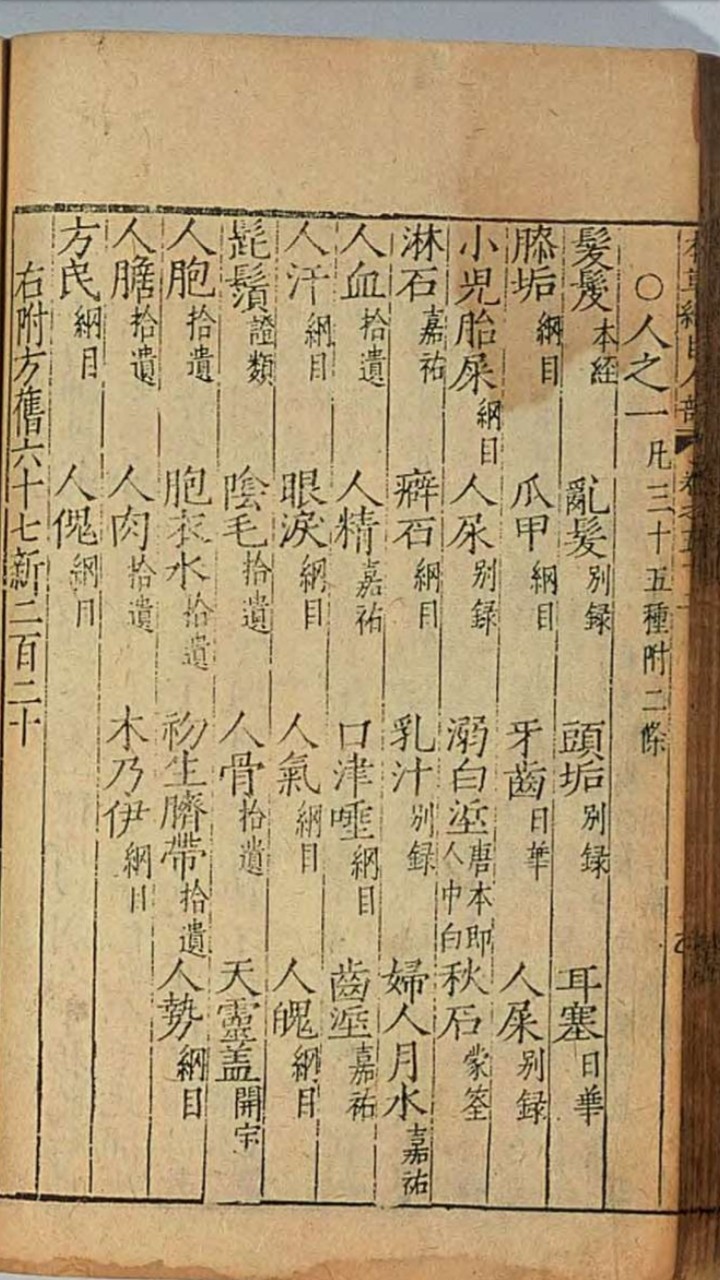 本草綱目人部
〇人之一凡三十五種附二條
髮髲本經 亂髮別録 頭垢別録 耳塞日華
膝垢綱目 爪甲綱目 牙齒日華 人屎別録
小兒胎屎綱目 人尿別録 溺白垽唐本即人中白 秋石蒙筌
淋石嘉祐 癖石綱目 乳汁別録 婦人月水嘉祐
人血拾遺 人精嘉祐 口津唾綱目 齒垽嘉祐
人汗綱目 眼淚綱目 人氣綱目 人魄綱目
髭鬚證類 陰毛拾遺 人骨拾遺 天靈盖開宝
人胞拾遺 胞衣水拾遺 初生臍帶拾遺 人勢綱目
人膽拾遺 人肉拾遺 木乃伊綱目
方民綱目 人傀綱目
右附方舊六十七新二百二十